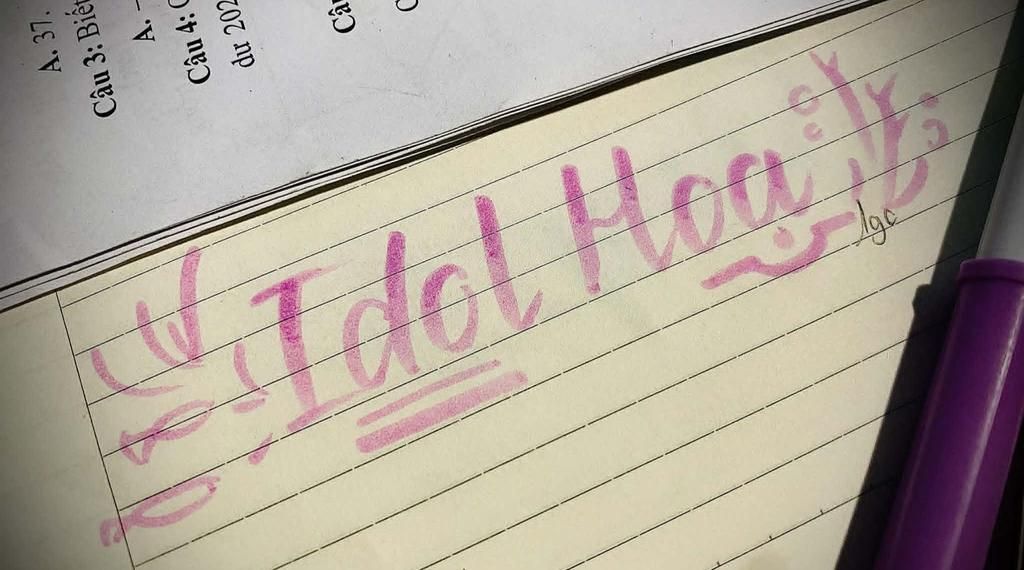 A. 37.
Câu 3: Biết
A.
Câu 4:
dư 202
Câu
Idol Hoa